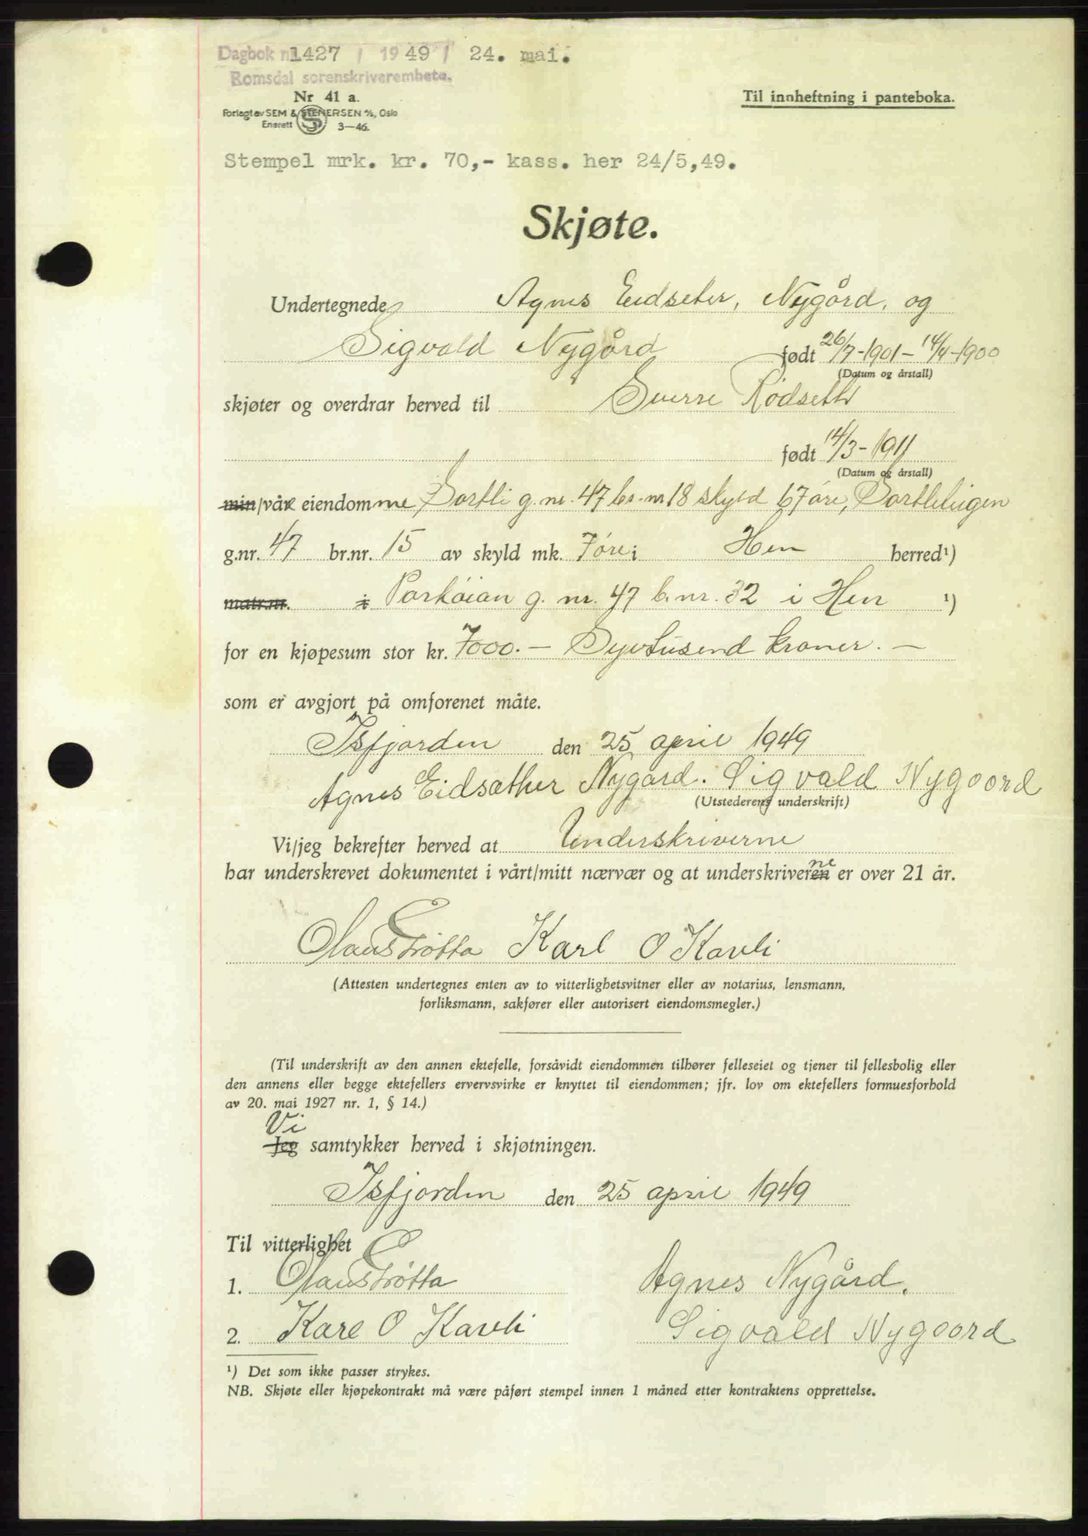 Dagbok nr. 1427 / 1949 / 24. mai.
Romsdal sorenskriverembete.
Nr 41 a.
Forlagt av SEM & STENERSEN A/S, Oslo
Enerett 3—46.
Til innheftning i panteboka.
Stempel mrk. kr. 70,- kass. her 24/5,49.
Skjøte.
Undertegnede Agnes Eidseter, Nygård, og
Sigvald Nygård født 26/7-1901 - 14/4-1900
(Datum og årstall)
skjøter og overdrar herved til Sverre Rødseth
født 14/3-1911
(Datum og årstall)
min/våre eiendomme, Sortli g. nr. 47 br. nr 18 skyld 67 øre,
g.nr. 47 br.nr. 15 av skyld mk. 7 øre i Hen herred¹)
matr.nr. i g. nr. 47 b. nr. 32 i Hen ¹)
for en kjøpesum stor kr. 7000.— Syvtusend kroner.—
som er avgjort på omforenet måte.
Isfjorden den 25 april 1949
Agnes Eidsæther Nygård. Sigvald Nygoord
(Utstederens underskrift)
Vi/jeg bekrefter herved at Underskriverne
har underskrevet dokumentet i vårt/mitt nærvær og at underskriverne er over 21 år.
Claus Trøtta Karl O Kavli
(Attesten undertegnes enten av to vitterlighetsvitner eller av notarius, lensmann,
forliksmann, sakfører eller autorisert eiendomsmegler.)
(Til underskrift av den annen ektefelle, forsåvidt eiendommen tilhører felleseiet og tjener til fellesbolig eller
den annens eller begge ektefellers ervervsvirke er knyttet til eiendommen; jfr. lov om ektefellers formuesforhold
av 20. mai 1927 nr. 1, § 14.)
Vi
Jeg samtykker herved i skjøtningen.
Isfjorden den 25 april 1949
Til vitterlighet
1. Claus Trøtta Agnes Nygård.
2. Karl O Kavli Sigvald Nygoord
¹) Det som ikke passer strykes.
NB. Skjøte eller kjøpekontrakt må være påført stempel innen 1 måned etter kontraktens opprettelse.